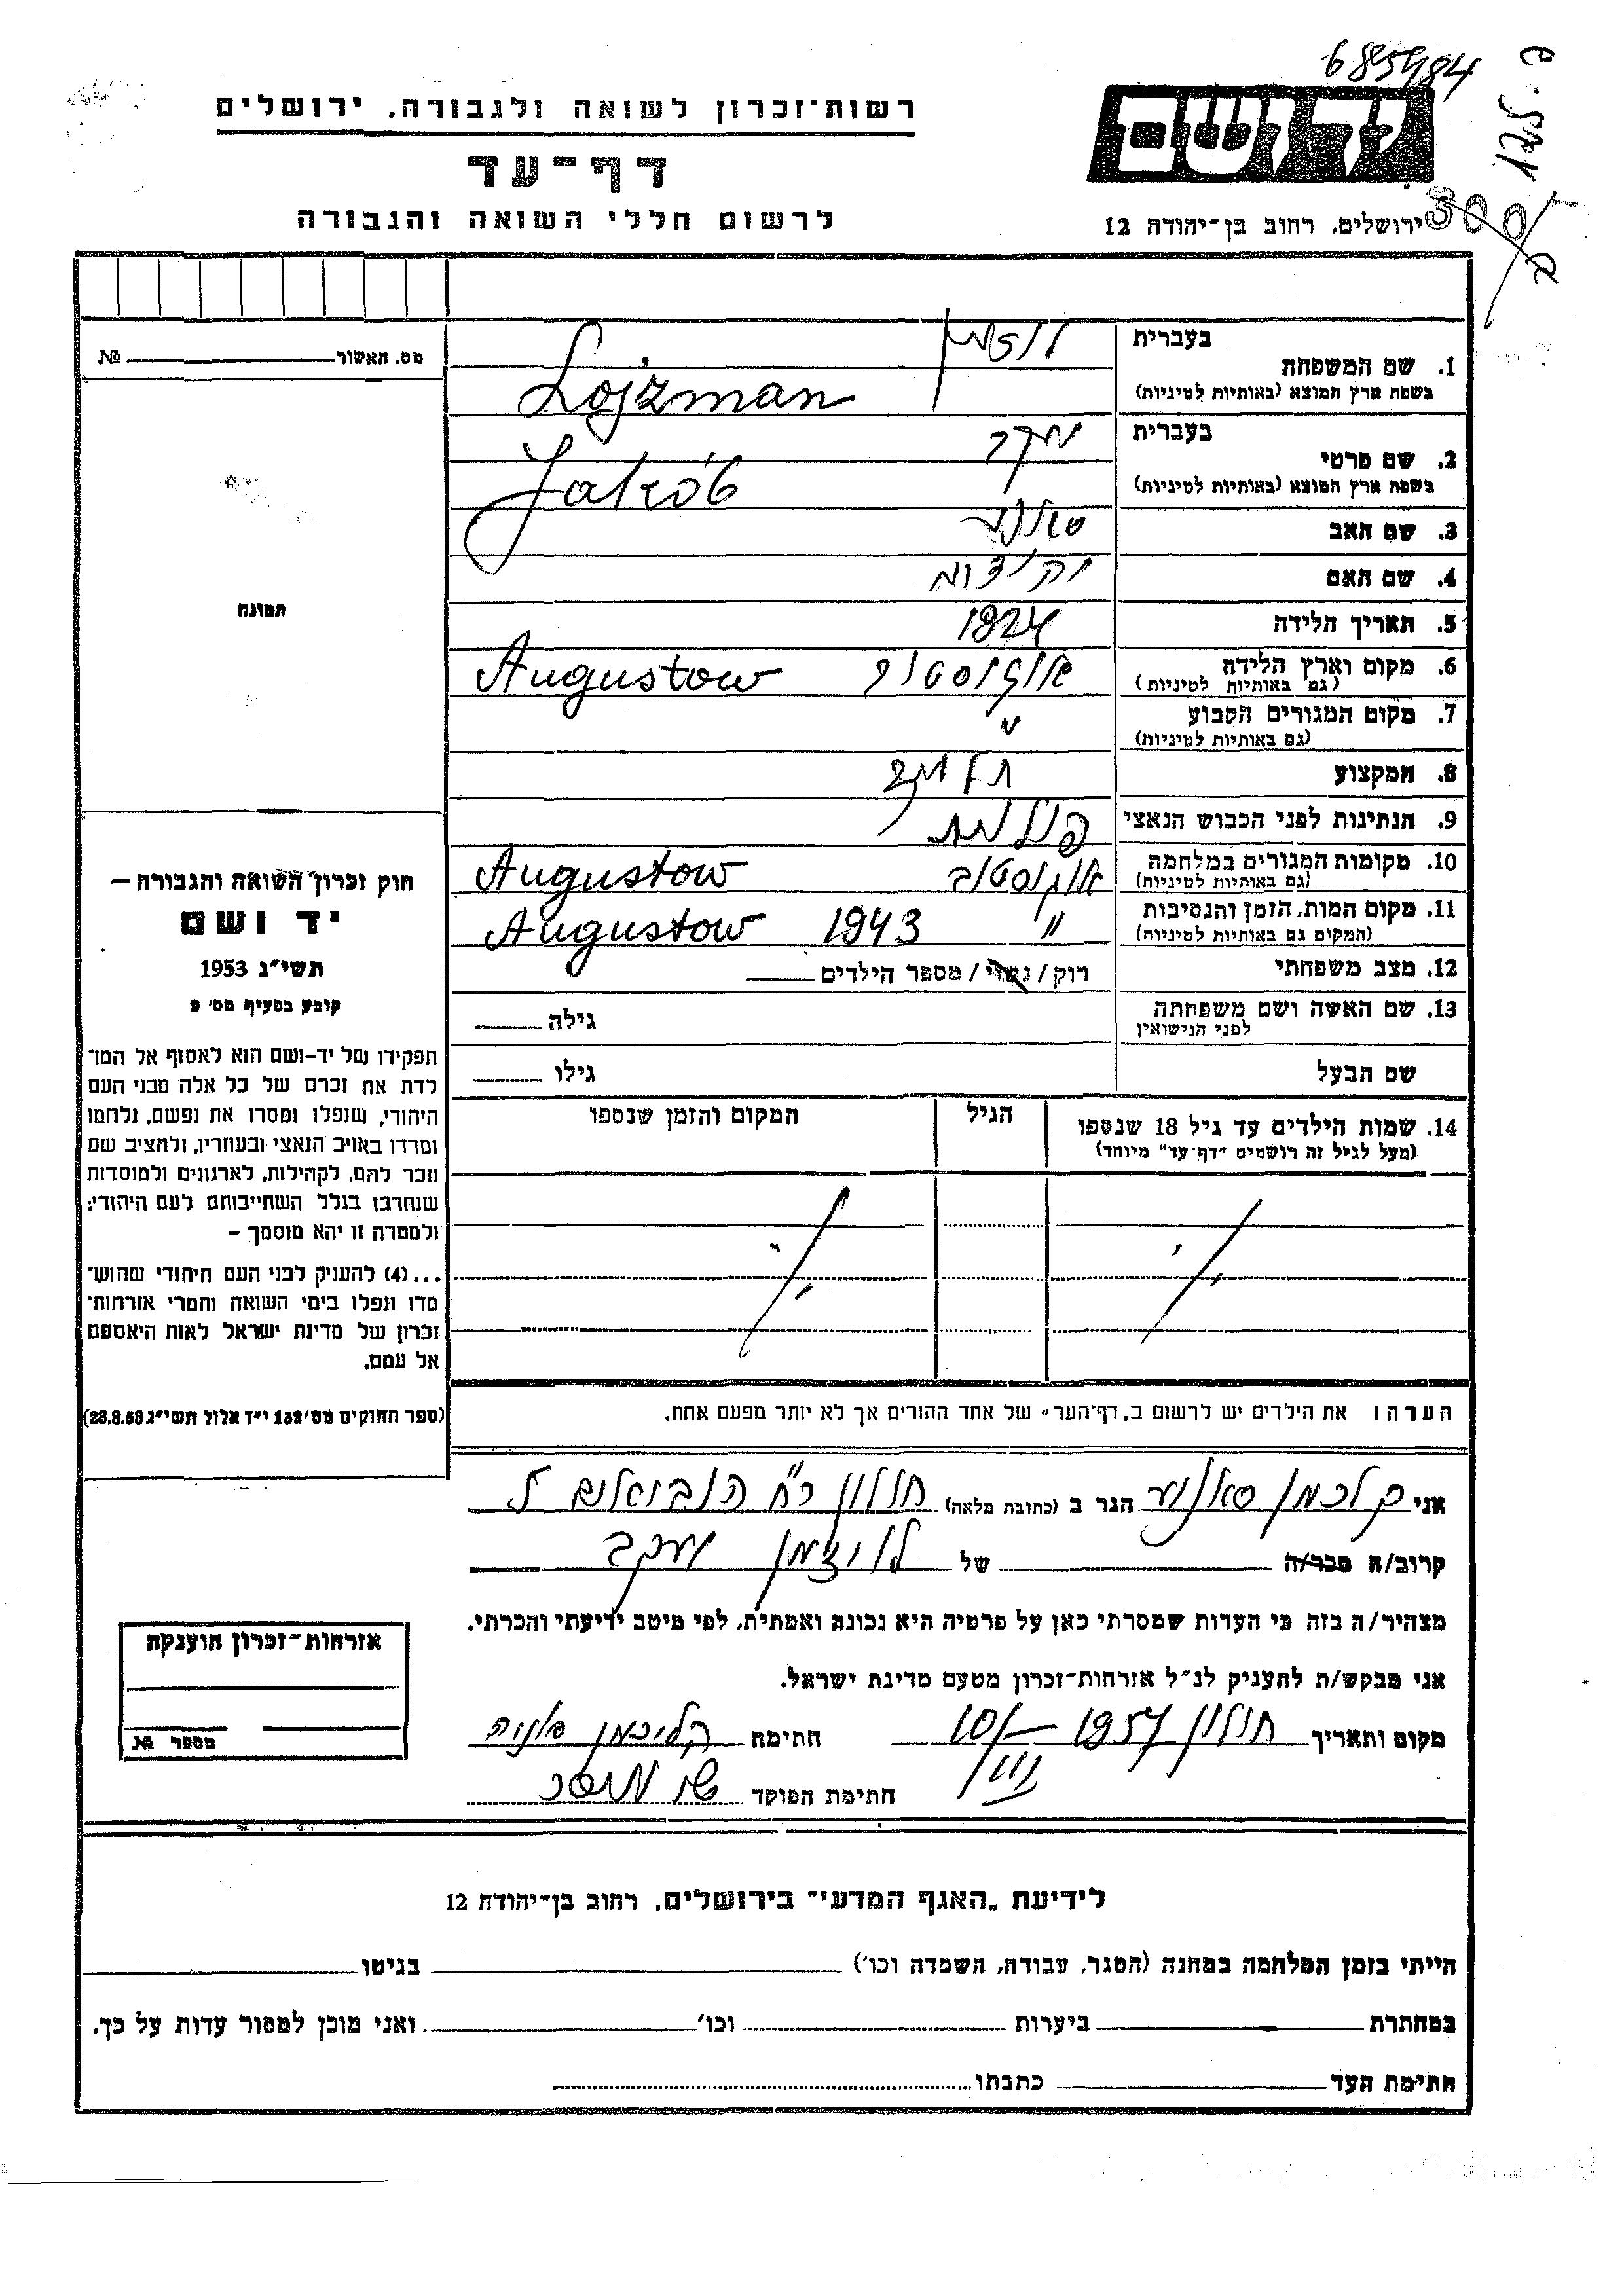 685984
רשות-זכרון לשואה ולגבורה, ירושלים
יד ושם
דף-עד
לרשום חללי השואה והגבורה
ירושלים, רחוב בן-יהודה 12
300
מס. האשור № ______
תמונה
1. שם המשפחה
בעברית
בשפת ארץ המוצא (באותיות לטיניות) Lojzman
2. שם פרטי
בעברית יעקב
בשפת ארץ המוצא (באותיות לטיניות) Jakób
3. שם האב
4. שם האם
5. תאריך הלידה 1924
6. מקום וארץ הלידה אוגוסטוב Augustow
(גם באותיות לטיניות)
7. מקום המגורים הקבוע "
(גם באותיות לטיניות)
8. המקצוע תלמיד
9. הנתינות לפני הכבוש הנאצי פולנית
10. מקומות המגורים במלחמה אוגוסטוב Augustow
(גם באותיות לטיניות)
11. מקום המות, הזמן והנסיבות " 1943 Augustow
(המקום גם באותיות לטיניות)
12. מצב משפחתי רוק/נשוי/מספר הילדים ______
13. שם האשה ושם משפחתה גילה ______
לפני הנישואין
שם הבעל גילו ______
14. שמות הילדים עד גיל 18 שנספו הגיל המקום והזמן שנספו
(מעל לגיל זה רושמים "דף-עד" מיוחד)
הערה: את הילדים יש לרשום ב"דף-העד" של אחד ההורים אך לא יותר מפעם אחת.
חוק זכרון השואה והגבורה –
יד ושם
תשי"ג 1953
קובע בסעיף מס' 2
תפקידו של יד-ושם הוא לאסוף אל המו-
לדת את זכרם של כל אלה מבני העם
היהודי, שנפלו ומסרו את נפשם, נלחמו
ומרדו באויב הנאצי ובעוזריו, ולהציב שם
וזכר להם, לקהילות, לארגונים ולמוסדות
שנחרבו בגלל השתייכותם לעם היהודי;
ולמטרה זו יהא מוסמך –
...(4) להעניק לבני העם היהודי שהוש-
מדו ונפלו בימי השואה והמרי אזרחות-
זכרון של מדינת ישראל לאות היאספם
אל עמם.
(ספר החוקים מס' 132 י"ז אלול תשי"ג 28.8.53)
אני הגר ב (כתובת מלאה) חולון
קרוב/ה מכר/ה ______ של לויצמן יעקב
מצהיר/ה בזה כי העדות שמסרתי כאן על פרטיה היא נכונה ואמתית, לפי מיטב ידיעתי והכרתי.
אני מבקש/ת להעניק לנ"ל אזרחות-זכרון מטעם מדינת ישראל.
מקום ותאריך חולון 1957 10/ חתימה
חתימת הפוקד
אזרחות-זכרון הוענקה
מספר №
לידיעת "האגף המדעי" בירושלים, רחוב בן-יהודה 12
הייתי בזמן המלחמה במחנה (הסגר, עבודה, השמדה וכו') ______ בגיטו ______
במחתרת ______ ביערות ______ וכו' ______ ואני מוכן למסור עדות על כך.
חתימת העד ______ כתבתו ______